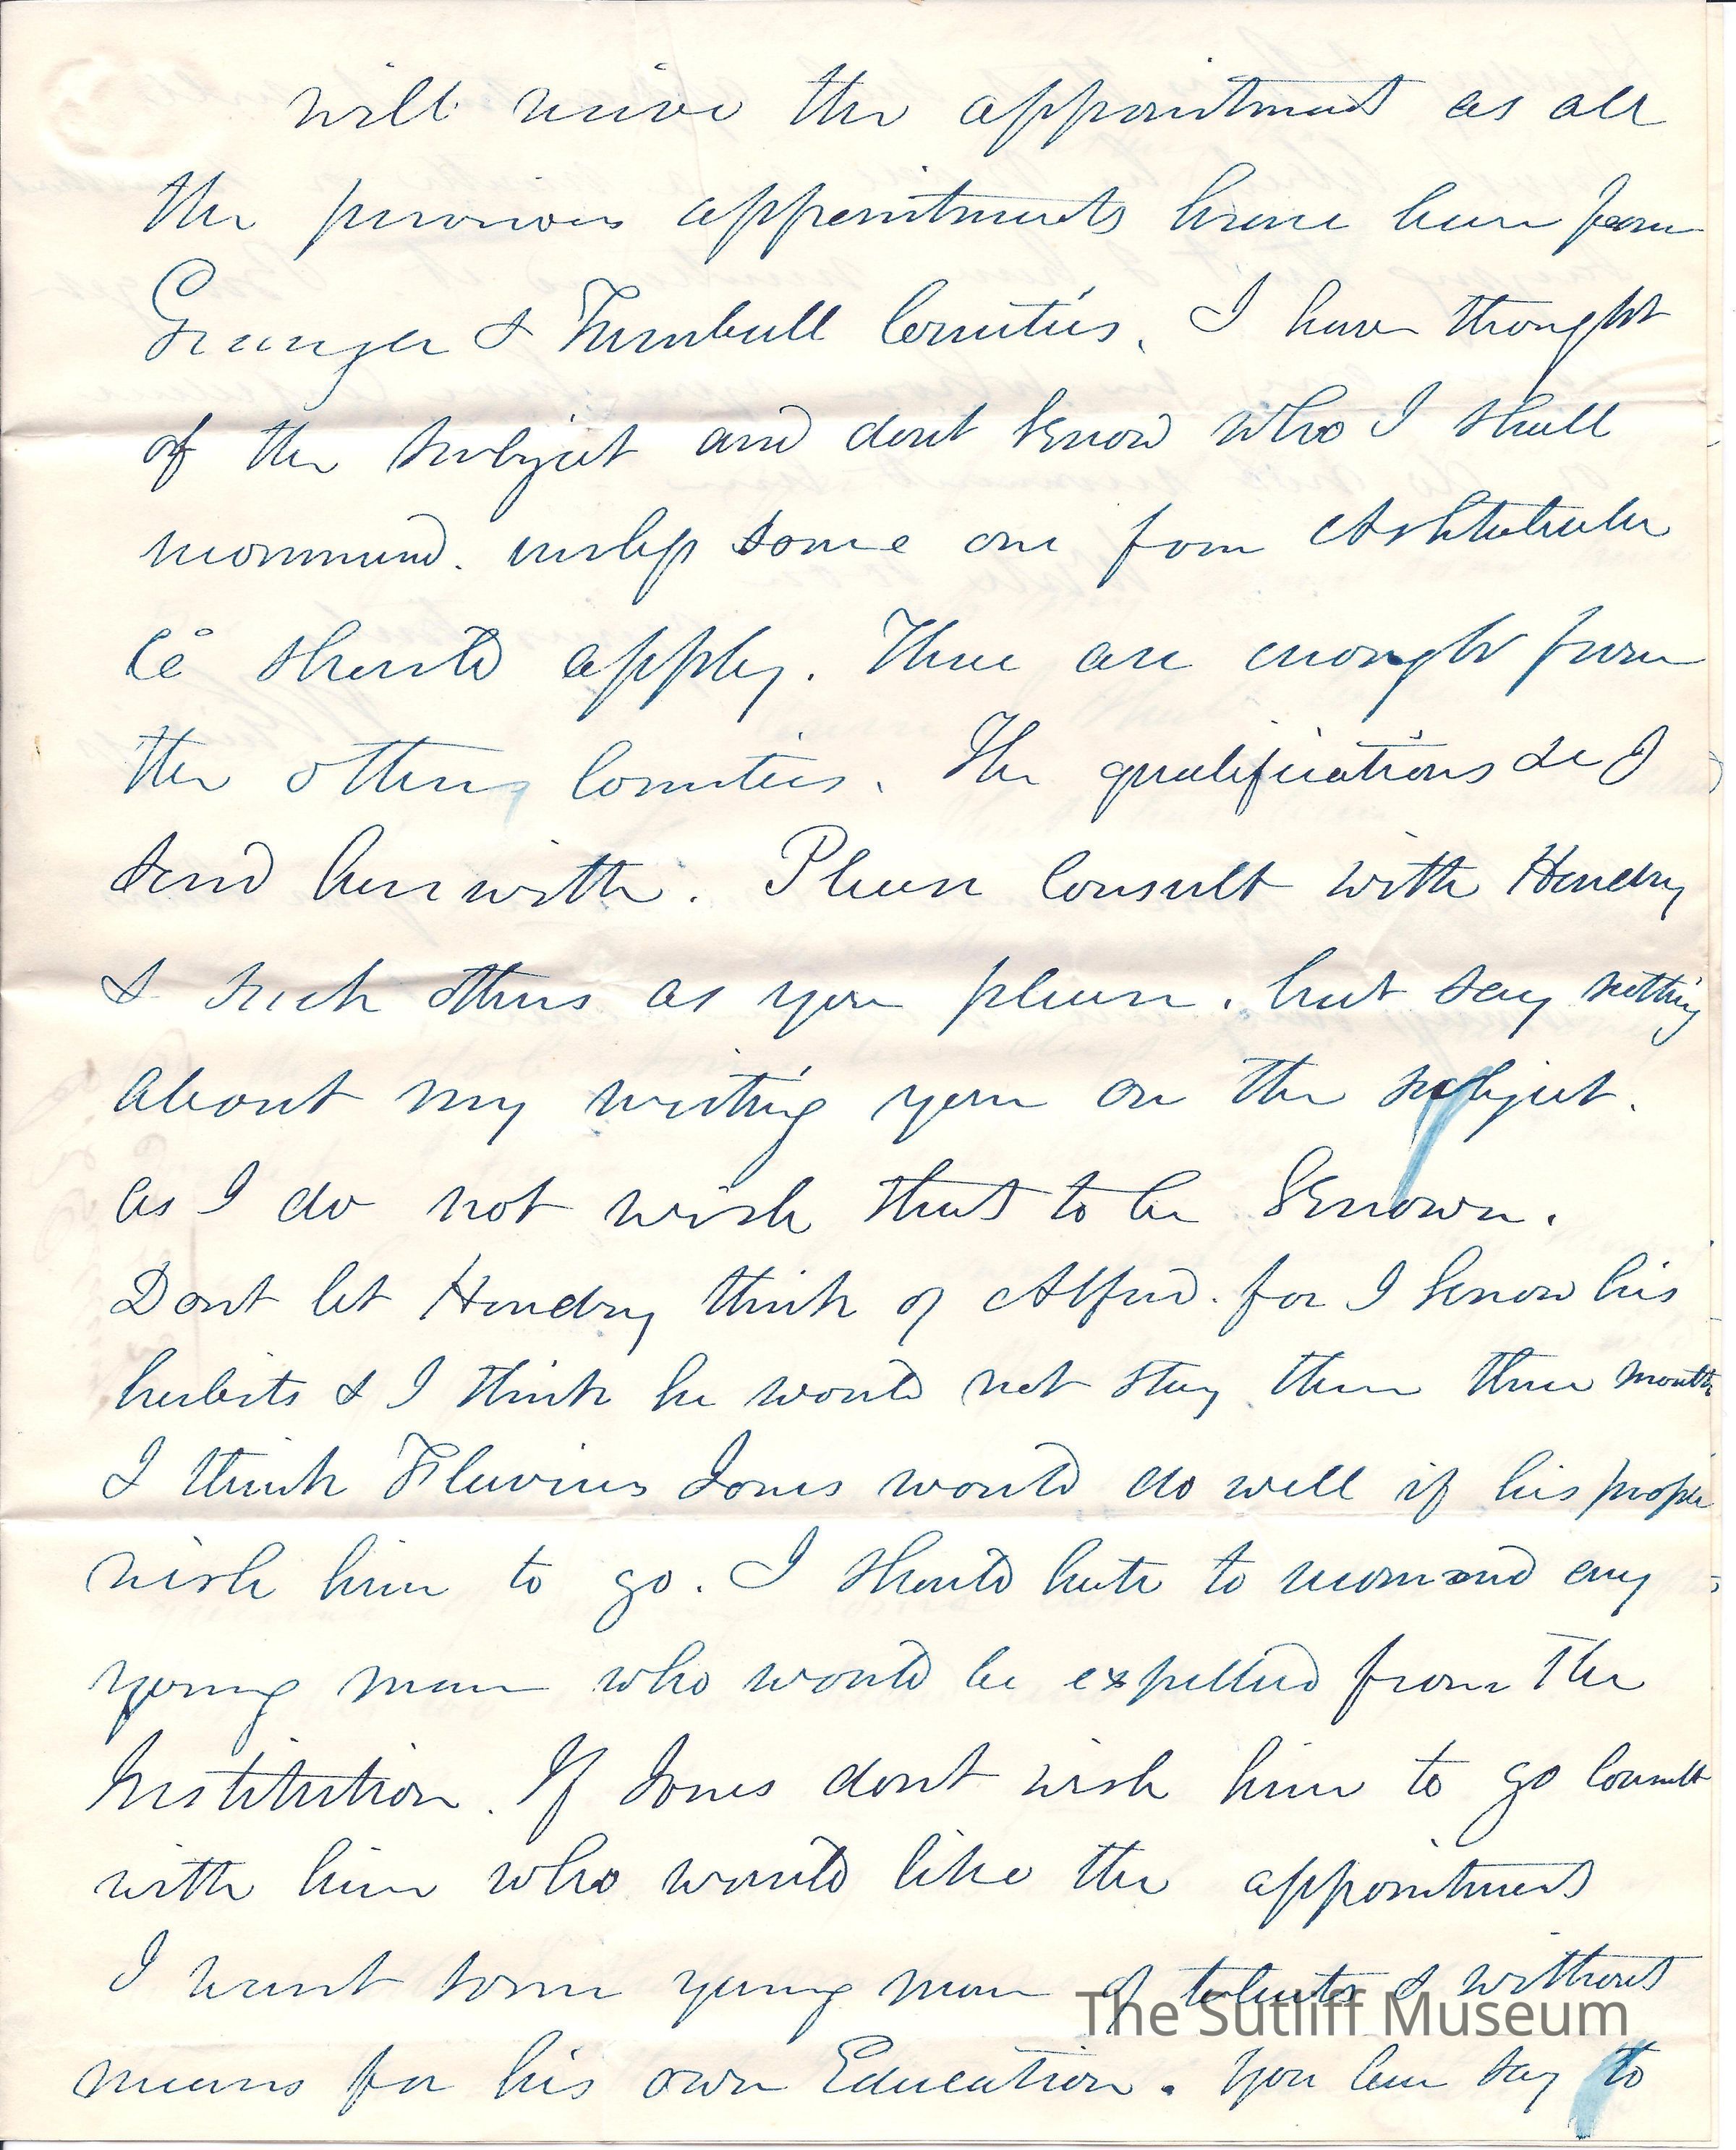 will receive the appointment as all
the previous appointments have been from
Geauga & Trumbull Counties. I have thought
of the subject and dont know who I shall
recommend. unless some one from Ashtabula
Co should apply. There are enough from
the others Counties. The qualifications &c I
send herewith. Please Consult with Hendry
& such others as you please. but say nothing
about my writing you on the subject.
as I do not wish that to be Known.
Dont let Hendry think of Alfred. for I know his
habits & I think he would not stay there three months
I think Flavius Jones would do well if his people
wish him to go. I should hate to recommend any
young man who would be expelled from the
Institution. If Jones dont wish him to go Consult
with him who would like the appointment
I want some young man of talents & without
means for his own Education. You can say to
The Sutliff Museum